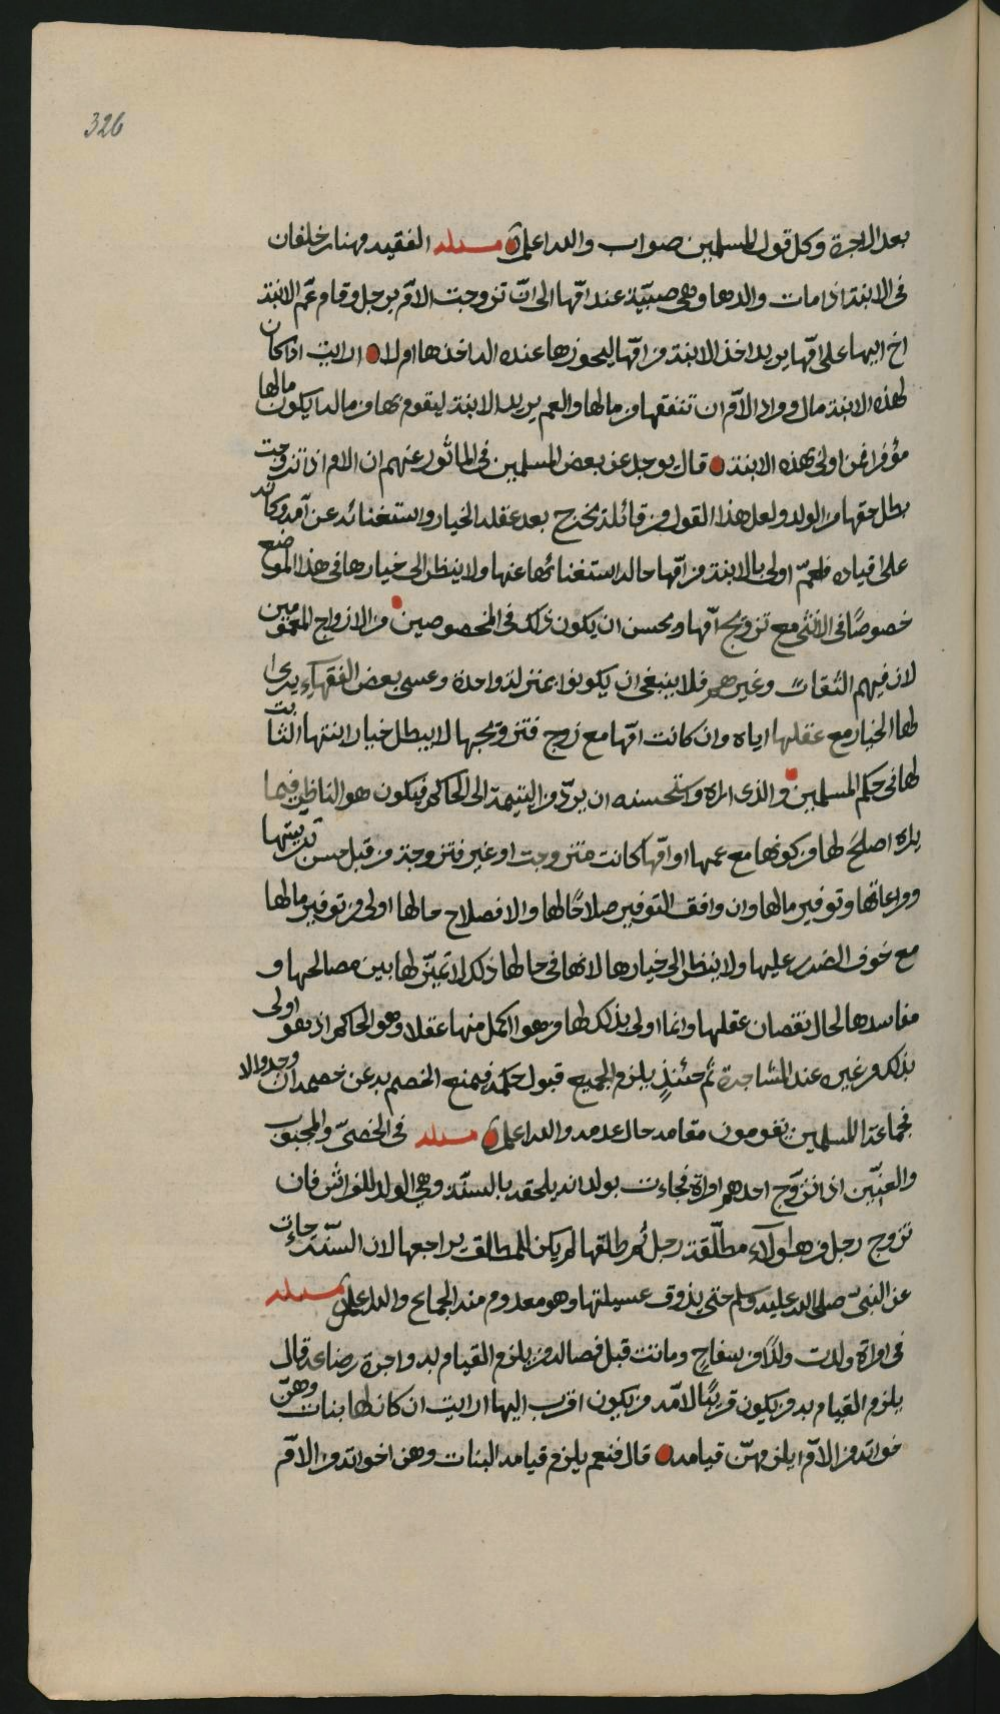 326
بعد الاجرة وكل قول المسلمين صواب والله اعلم مسئله الفقيه مهنا بن خلفان
فى الابنة اذا مات والدها وهى صبيّة عند امّها الى انّ تزوجت الامّ برجل وقام عمّ الابنة
اخ ابيها على امّها يريد اخذ الابنة من امّها ليحوزها عنده اله اخذها ام لا ارايت اذا كان
لهذه الابنة مال ومراد الامّ ان تنفقها من مالها والعم يريد الابنة ليقوم بها من ماله يكون مالها
مؤفرا فمن اولى بهذه الابنة قال يوجد عن بعض المسلمين فى الماثور عنهم ان الام اذا تزوجت
بطل حقها من الولد ولعل هذا القول من قائله يخرج بعد عقله الخيار واستغنائه عن امّه وكانه
على قياده فلعمّ اولى بالابنة من امّها حال استغنائها عنها ولا ينظر الى خيارها فى هذا الموضع
خصوصًا فى الانثى مع تزويج امّها ويحسن ان يكون ذلك فى المخصوصين من الازواج لا العمومين
لان فيهم الثقات وغيرهم فلا ينبغى ان يكونوا بمنزلة واحدة وعسى بعض الفقهاء يرى
لها الخيار مع عقلها اياه وان كانت امّها مع زوج فتزويجها لا يبطل خيار ابنتها الثابت
لها فى حكم المسلمين والذى اراه واستحسنه ان يردّ امر اليتيمة الى الحاكم فيكون هو الناظر فيما
يراه اصلح لها من كونها مع عمها او امّها كانت متزوجت او غير متزوجة من قبل حسن تربيتها
ومراعاتها وتوفير مالها وان وافق التوفير صلاحًا لها والا فصلاح حالها اولى من توفير مالها
مع خوف الضرر عليها ولا ينظر الى خيارها لانها فى حالها ذلك لا تميّز لها بين مصالحها و
مفاسدها لحال نقصان عقلها وانما اولى بذلك لها من هو اكمل منها عقلا وهو الحاكم اذ هو اولى
بذلك من غيره عند المشاجرة ثم حئنذٍ يلزم الجميع قبول حكمه فيمنع الخصم به عن خصمه ان وجد والا
فجماعة المسلمين يقومون مقامه حال عدمه والله اعلم مسئله فى الخصىّ والمجبوب
والعنّين اذا تزوّج احدهم امراة فجاءت بولد انه يلحقه بالسنّة وهى الولد للفراش فان
تزوج رجل من هولآء مطلّقة رجل ثم طلقها لم يكن للمطلق يراجعها لان السنّة جاءت
عن النبىّ صلى الله عليه وسلم حتى يذوق عسيلتها وهو معدوم منه الجماع والله اعلم مسئله
فى امراة ولدت ولدًا من سفاح وماتت قبل فصاله من يلزم القيام به واجرة رضاعه قال
يلزم القيام به من يكون قريبًا لامّه من يكون اقرب اليها ارايت ان كان لها بنات وهنّ
خواته من الامّ ايلزمهنّ قيامه قال فنعم يلزم قيامه البنات وهن اخواته من الامّ